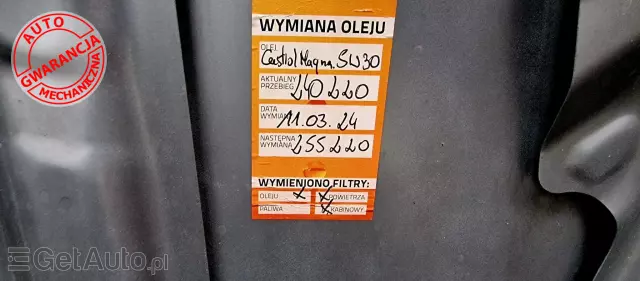 AUTO
GWARANCJA
MECHANICZNA
WYMIANA OLEJU
OLEJ
Castrol Magna. 5W30
AKTUALNY
PRZEBIEG
240220
DATA
WYMIANY
11.03.24
NASTĘPNA
WYMIANA
255220
WYMIENIONO FILTRY:
OLEJU X
X POWIETRZA
PALIWA
X KABINOWY
GetAuto.pl